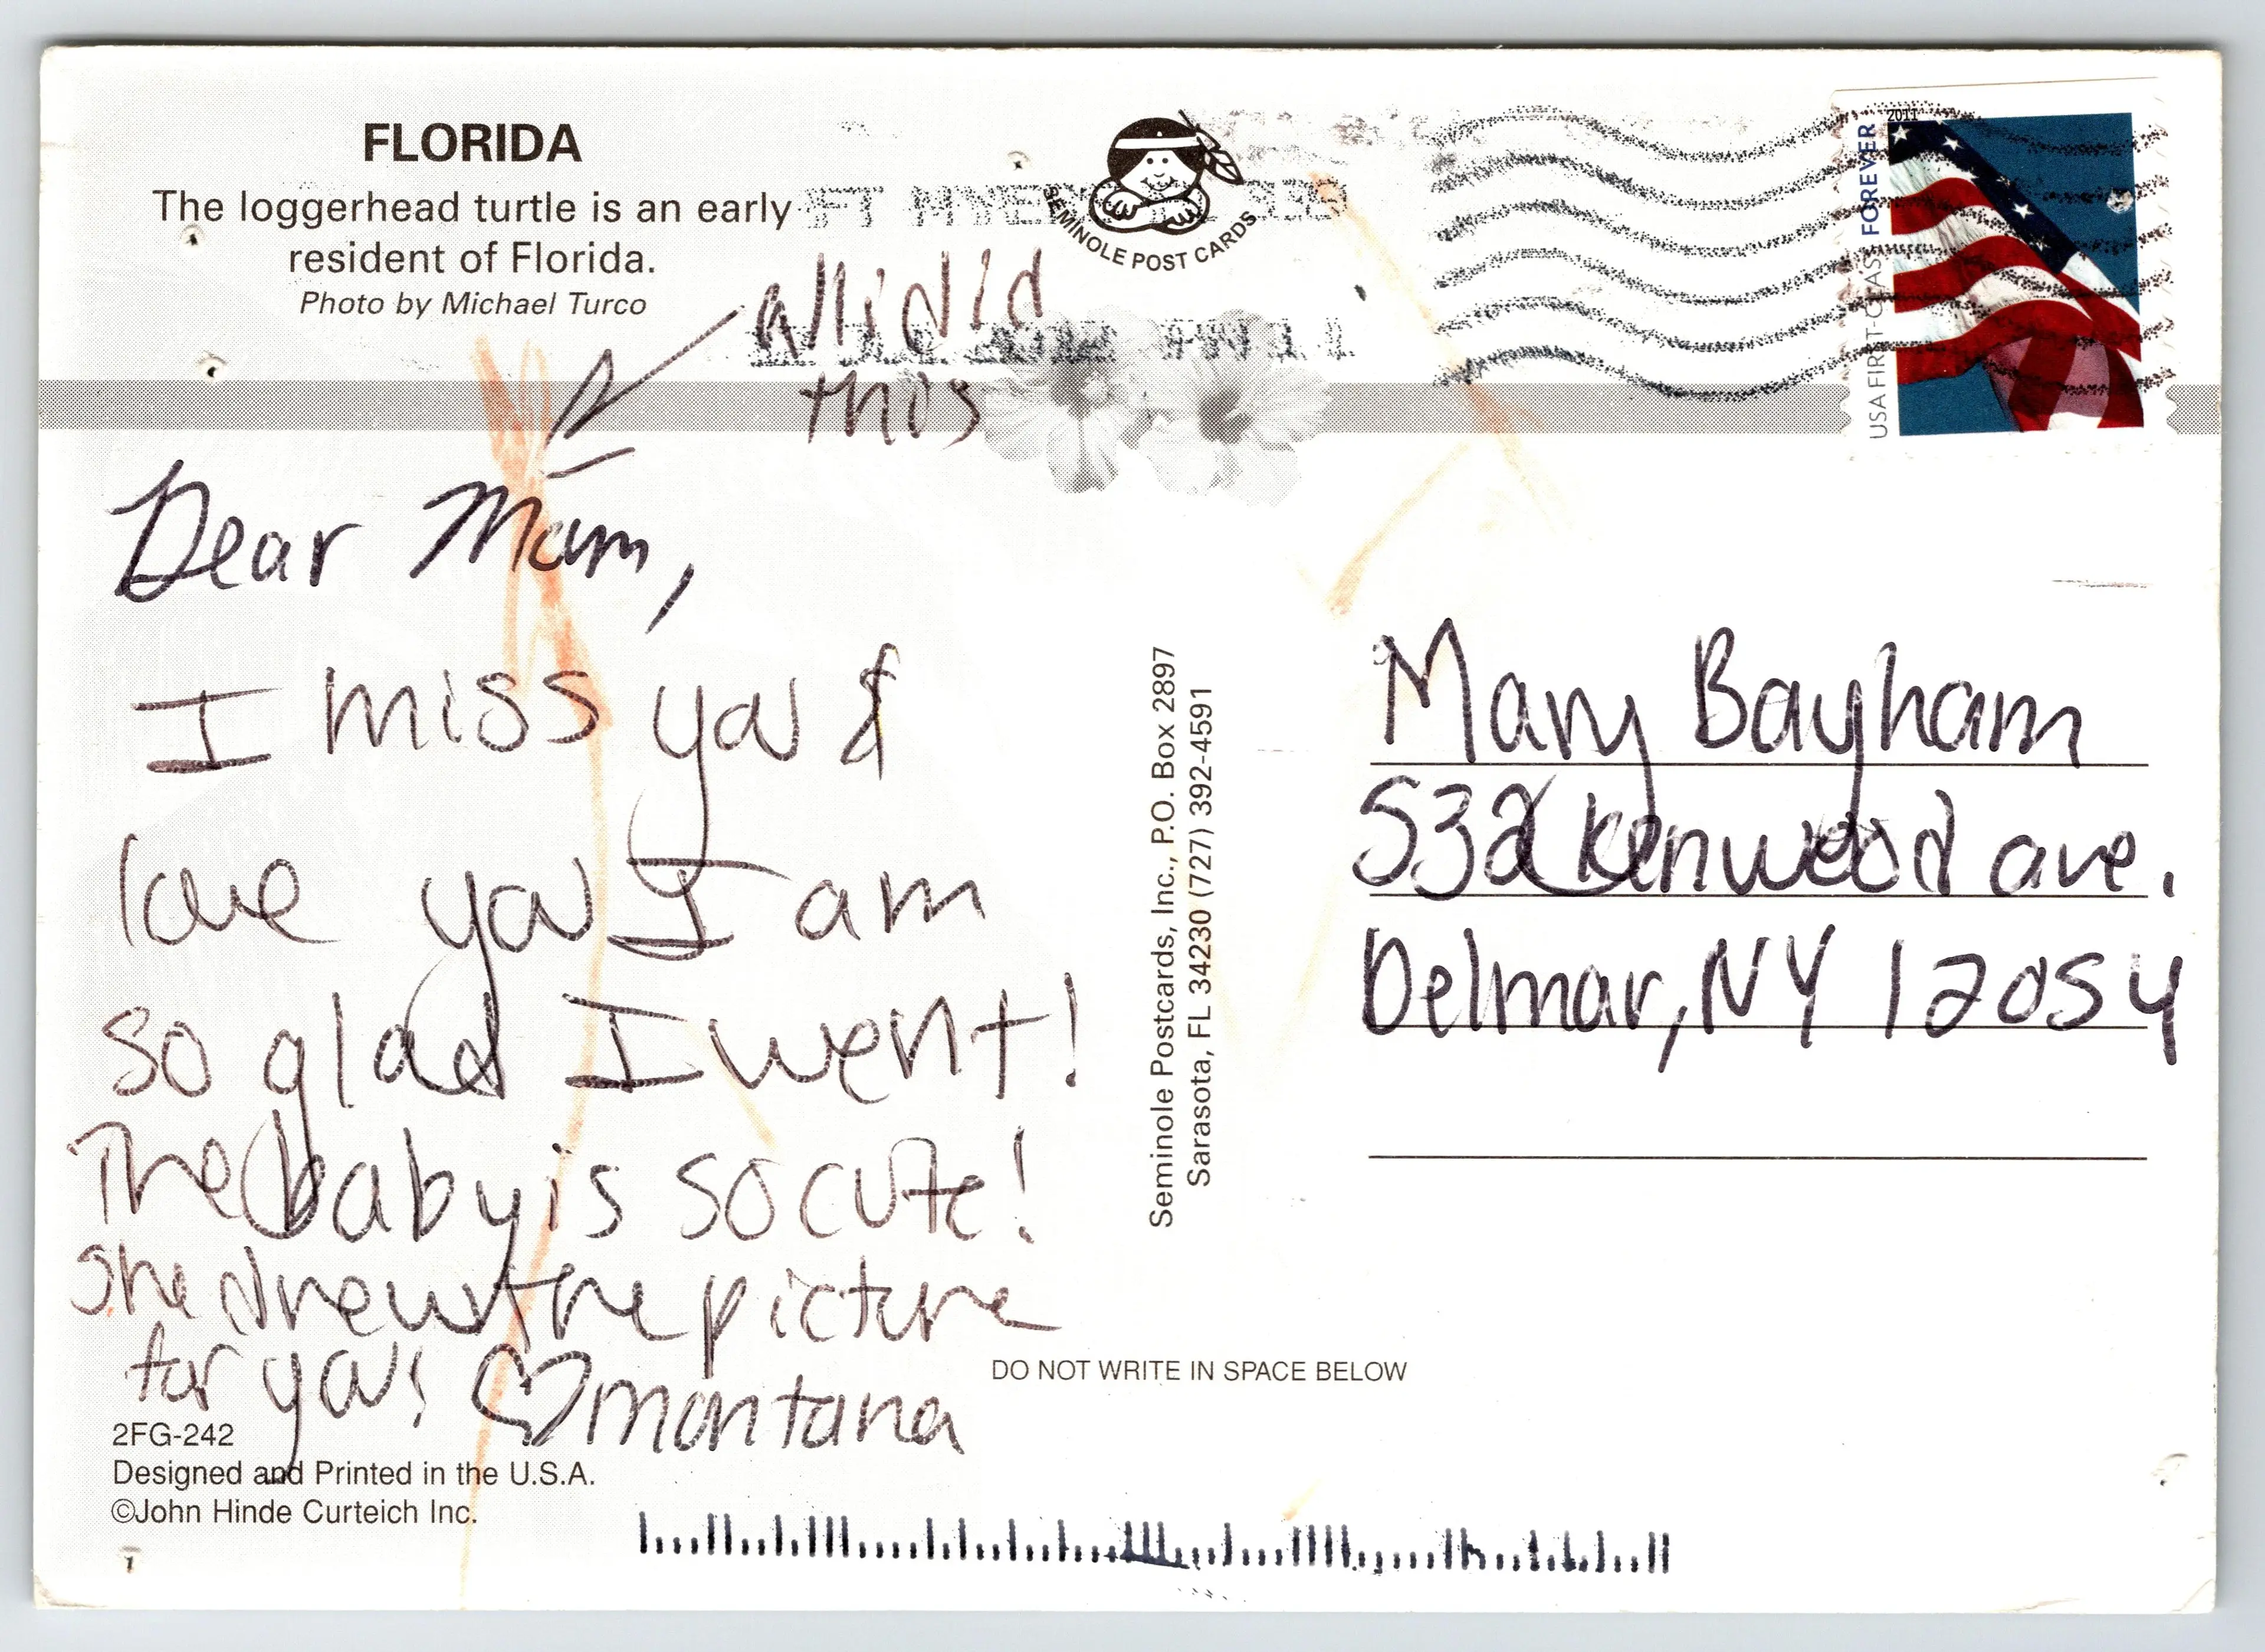 FLORIDA
The loggerhead turtle is an early
resident of Florida.
Photo by Michael Turco
SEMINOLE POST CARDS
FT MYERS
2011
FOREVER
USA FIRST-CLASS
this
Dear Mom,
I miss you &
love you I am
so glad I went!
The baby is so cute!
She drew the picture
for you! ♡montana
2FG-242
Designed and Printed in the U.S.A.
©John Hinde Curteich Inc.
Seminole Postcards, Inc., P.O. Box 2897
Sarasota, FL 34230 (727) 392-4591
DO NOT WRITE IN SPACE BELOW
Mary Bayham
532 Kenwood ave.
Delmar, NY 12054